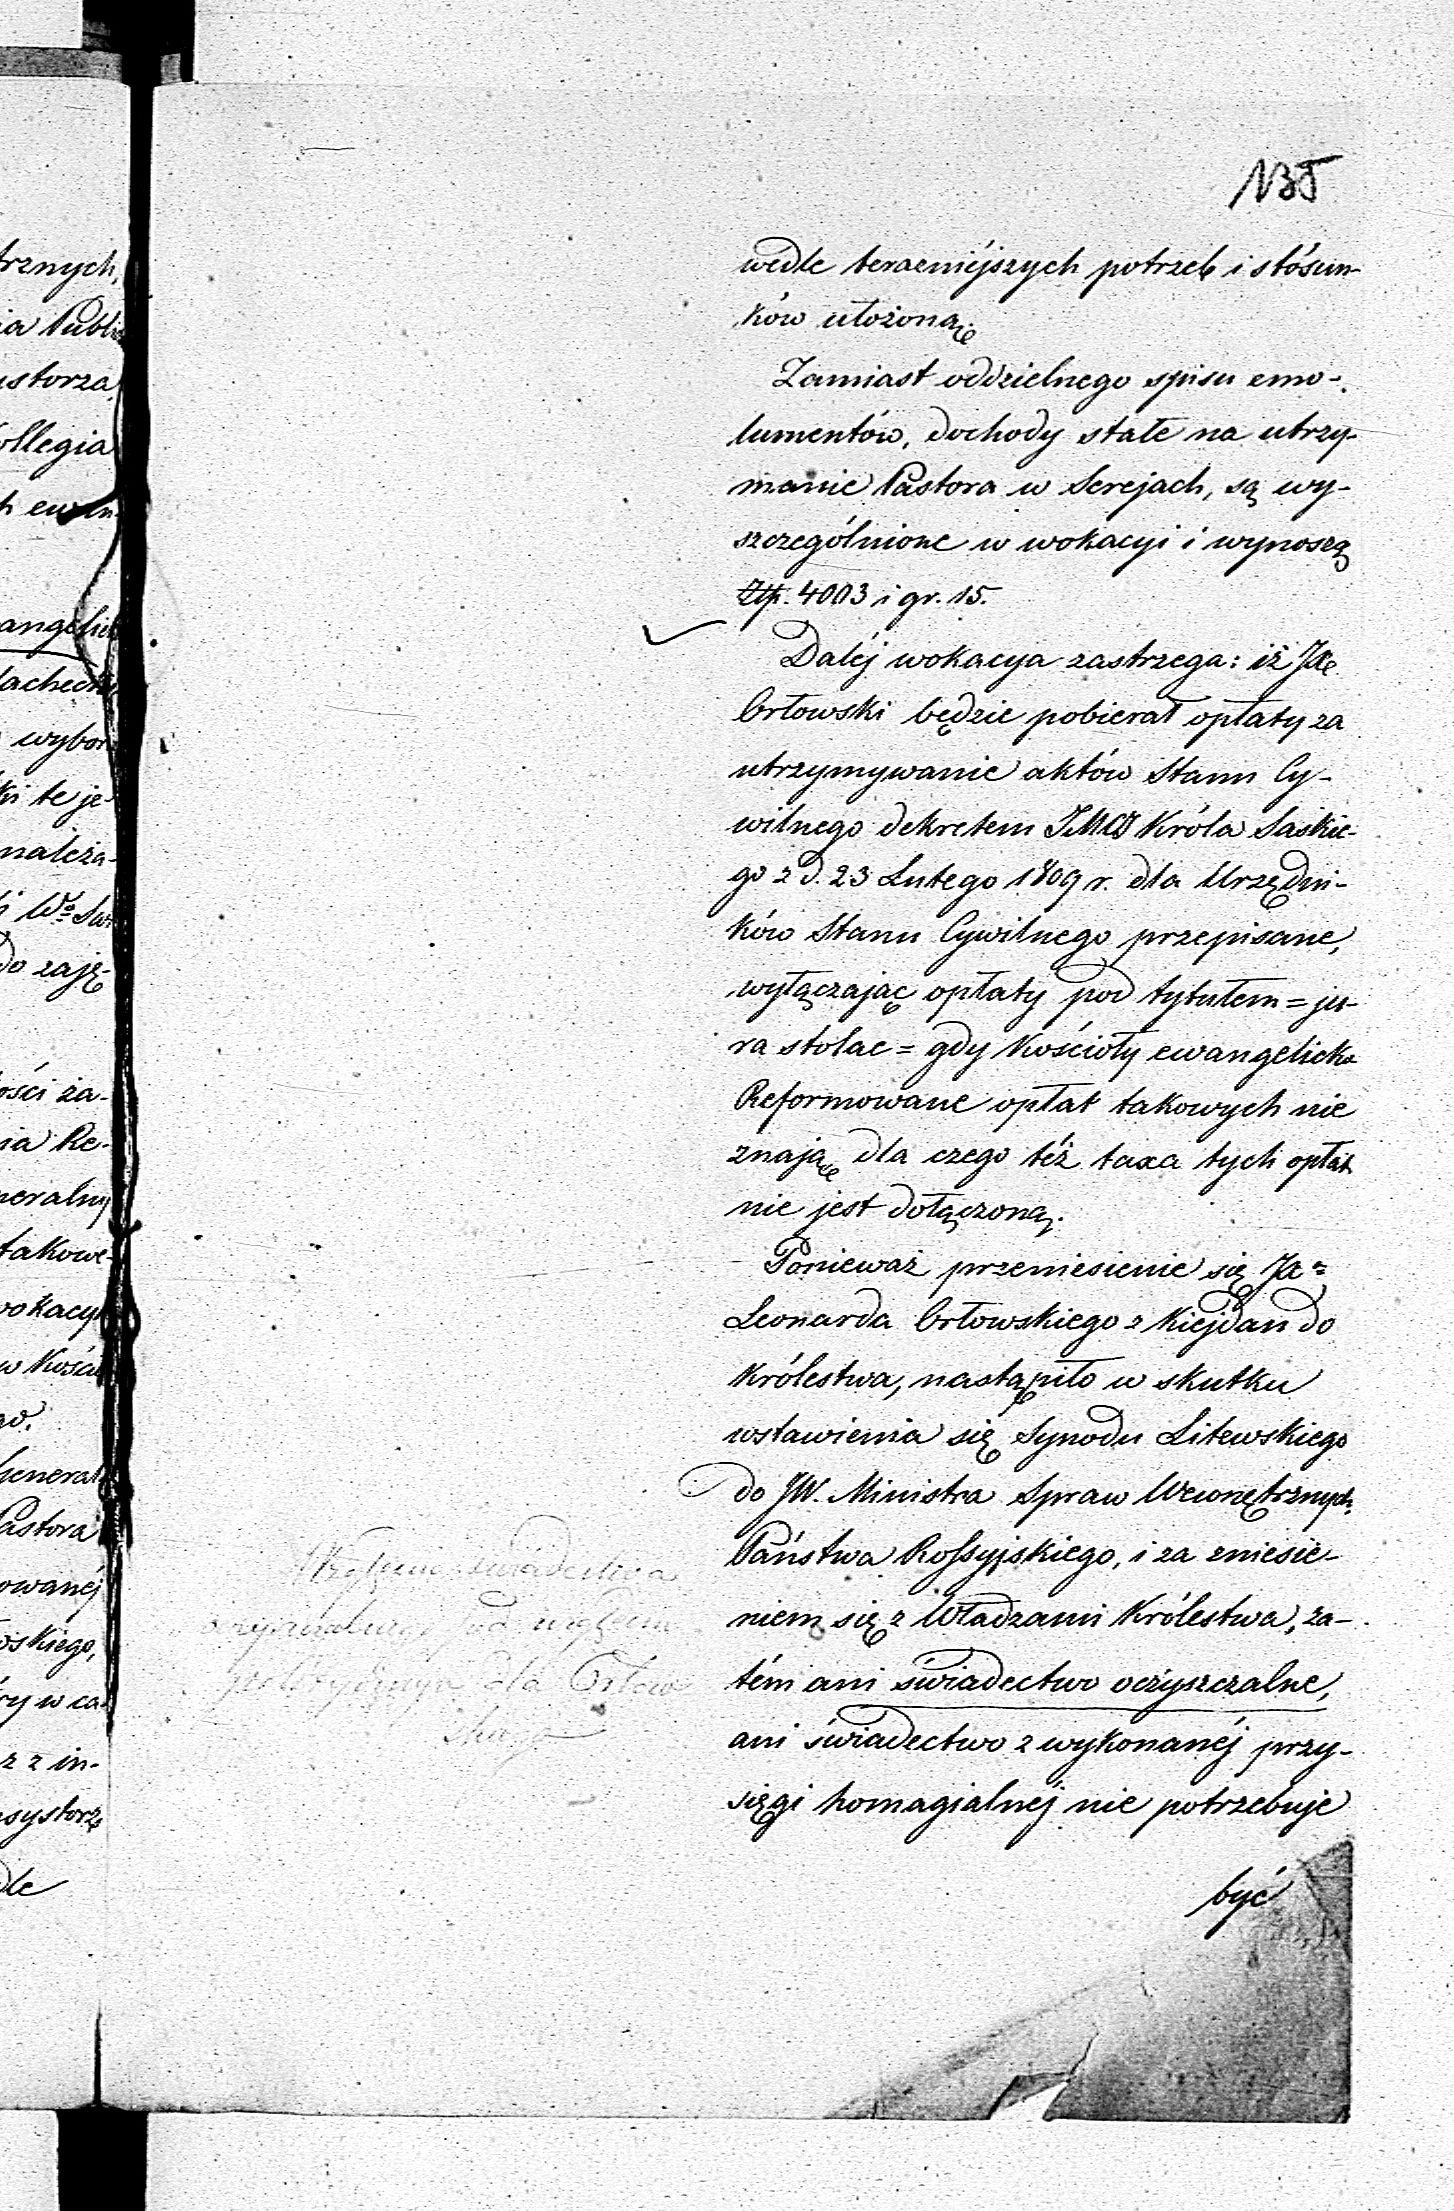 135
wedle terazniéjszych potrzeb i stósun-
ków ułożoną.
Zamiast oddzielnego spisu emo-
lumentów, dochody stałe na utrzy-
manie Pastora w Serejach, są wy-
szczególnione w wokacyi i wynoszą
Złp. 4003 i gr. 15.
Daléj wokacya zastrzega: iż JX.
Orłowski będzie pobierał opłaty za
utrzymywanie aktów Stanu Cy-
wilnego dekretem JMCi Króla Saskie-
go z d. 23 Lutego 1809 r. dla Urzędni-
ków Stanu Cywilnego przepisane,
wyłączając opłaty pod tytułem = ju-
ra stolae = gdy Kościoły ewangelicko
Reformowane opłat takowych nie
znają, dla czego téż taxa tych opłat
nie jest dołączoną.
Ponieważ przeniesienie się JXa
Leonarda Orłowskiego z Kiejdan do
Królestwa, nastąpiło w skutku
wstawienia się Synodu Litewskiego
do JW. Ministra Spraw Wewnętrznych
Państwa Rossyjskiego, i za zniesie-
niem się z Władzami Królestwa, za-
tém ani świadectwo oczyszczalne,
ani świadectwo z wykonanéj przy-
sięgi homagialnéj nie potrzebuje
być
świadectwa
pod względem
politycznym dla Orłow
skiego
trznych,
ia Publi
istorza
ollegia
h ewan
angelic
lacheck
wybor
ki te je-
należa-
i Wo Sw
do zaję-
ości za-
ia Re-
neralny
takowe
wokacyi
w Kości
go.
General
Pastora
owanéj
skiego,
ry w ca-
z z in-
systorz
dle